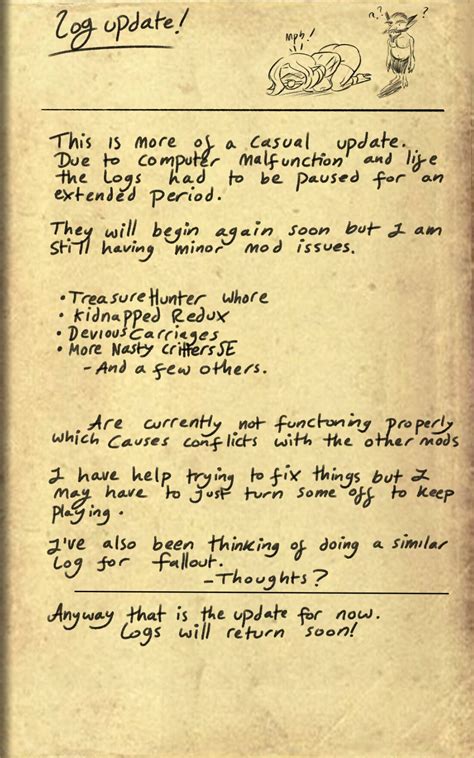 Log update!
mph!
?
?
?
This is more of a casual update.
Due to computer malfunction and life
the Logs had to be paused for an
extended period.
They will begin again soon but I am
Still having minor mod issues.
• TreasureHunter whore
• Kidnapped Redux
• Devious Carriages
• More Nasty Critters SE
- And a few others.
Are currently not functoning properly
which causes conflicts with the other mods
I have help trying to fix things but I
may have to just turn some off to keep
playing.
I've also been thinking of doing a similar
Log for fallout.
- Thoughts?
Anyway that is the update for now.
Logs will return soon!